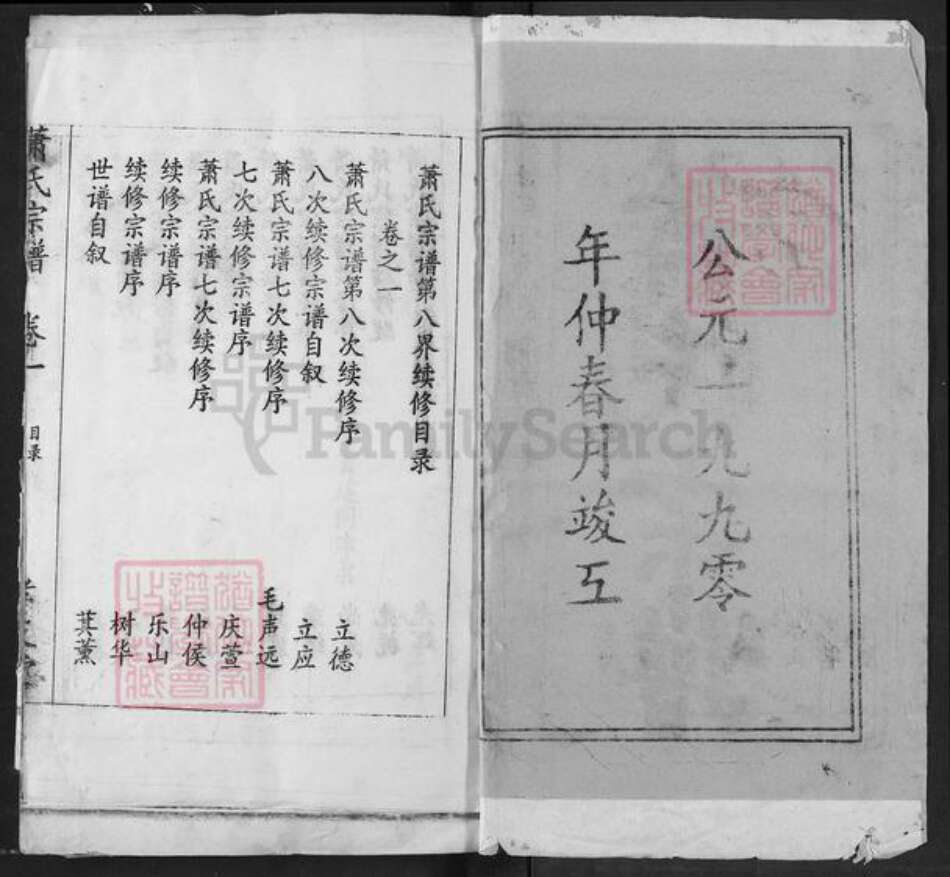 公元一九九零
年仲春月竣工
萧氏宗谱第八界续修目录
卷之一
萧氏宗谱第八次续修序 立德
八次续修宗谱自叙 立应
萧氏宗谱七次续修序 毛声远
七次续修宗谱序 庆萱
萧氏宗谱七次续修序 仲侯
续修宗谱序 乐山
续修宗谱序 树华
世谱自叙 萁薰
萧氏宗谱 卷一 目录
FamilySearch